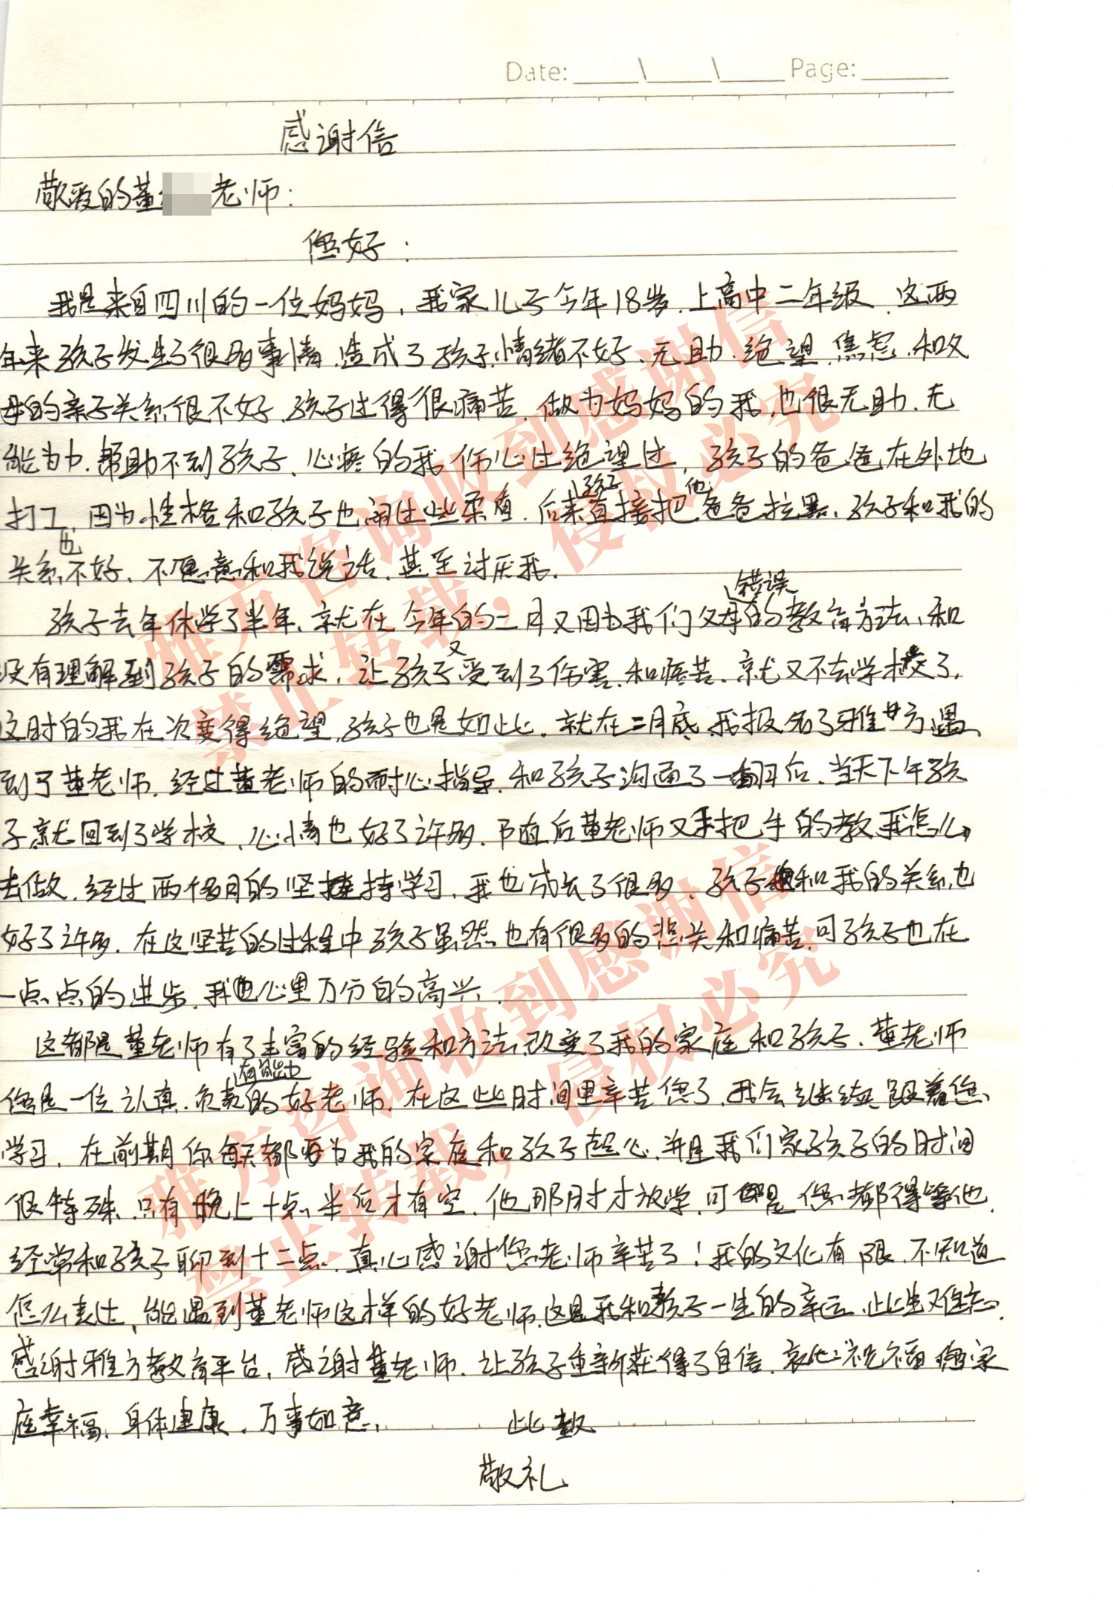 Date: ____\____\____ Page: ______
感谢信
敬爱的董 老师：
您好：
我是来自四川的一位妈妈，我家儿子今年18岁.上高中二年级.这两
年来孩子发生了很多事情.造成了孩子情绪不好.无助.绝望.焦虑.和父
母的亲子关系很不好.孩子过得很痛苦.做为妈妈的我也很无助.无
能为力.帮助不到孩子.心疼的我伤心过绝望过，孩子的爸爸在外地
打工,因为性格和孩子也闹出些矛盾.后来孩子直接把他爸爸拉黑.孩子和我的
关系也不好.不愿意和我说话.甚至讨厌我.
孩子去年休学了半年.就在今年的二月又因为我们父母错误的教育方法.和
没有理解到孩子的需求.让孩子又受到了伤害.和疼苦.就又不去学校了.
这时的我在次变得绝望.孩子也是如此.就在二月底我报名了雅方遇
到了董老师.经过董老师的耐心指导.和孩子沟通了一翻后.当天下午孩
子就回到了学校.心情也好了许多.随后董老师又手把手的教我怎么
去做.经过两个多月的坚持学习.我也成长了很多.孩子和我的关系也
好了许多.在这坚苦的过程中孩子虽然也有很多的 和痛苦.可孩子也在
一点点的进步.我也心里万分的高兴.
这都是董老师有了丰富的经验和方法.改变了我的家庭和孩子.董老师
您是一位认真.负责有能力的好老师.在这些时间里辛苦您了.我会继续跟着您
学习.在前期你每天都要为我的家庭和孩子 心.并且我们家孩子的时间
很特殊.只有晚上十点半后才有空.他那时才放学.可 是您都得等他.
经常和孩子聊到十二点.真心感谢您老师辛苦了！我的文化有限.不知道
怎么表达.能遇到董老师这样的好老师.这是我和孩子一生的幸运.此生难忘.
感谢雅方教育平台.感谢董老师.让孩子重新获得了自信.衷心祝福您家
庭幸福.身体建康.万事如意. 此致
敬礼
雅方咨询收到感谢信
禁止转载，侵权必究
雅方咨询收到感谢信
禁止转载，侵权必究